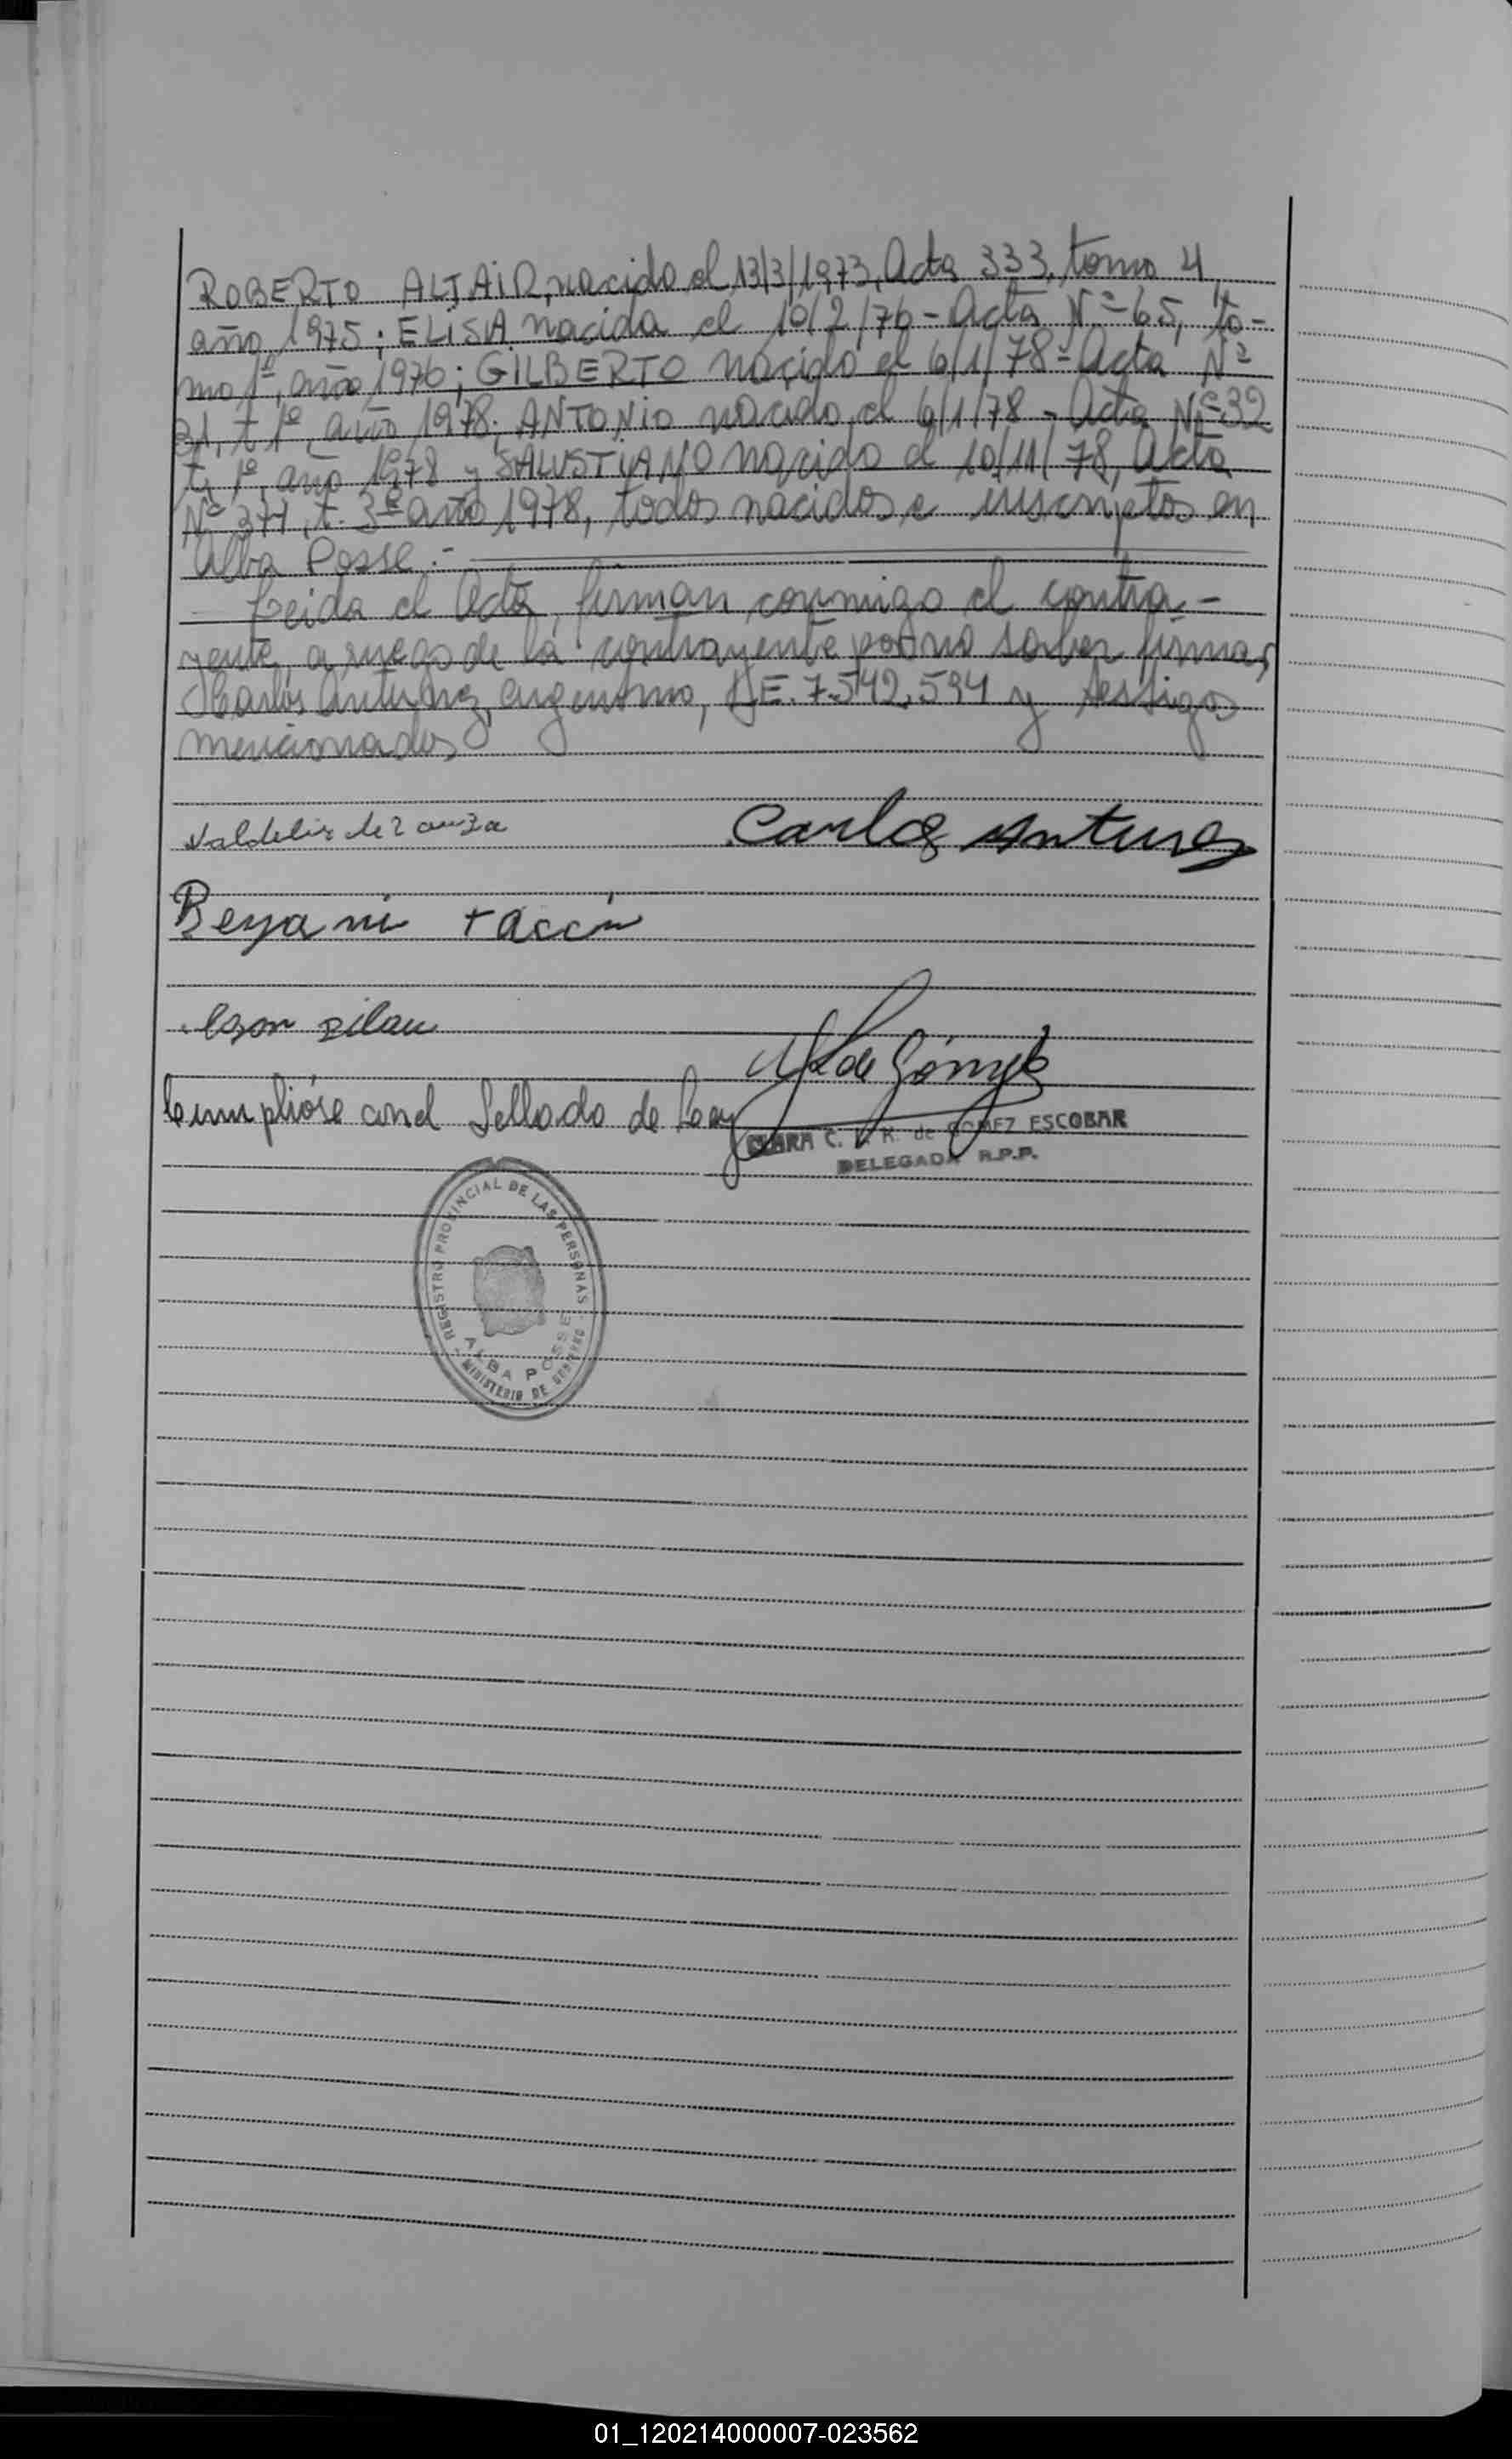 ROBERTO ALTAIR, nacido el 13/3/1973, Acta 333, tomo 4
año 1975; ELISA nacida el 10/2/76 - Acta Nº 65, to-
mo 1º, año 1976; GILBERTO nacido el 6/1/78 - Acta Nº
31, t 1º, año 1978; ANTONIO nacido el 6/1/78 - Acta Nº 32
t, 1º, año 1978 y SALUSTIANO nacido el 10/11/78, Acta
Nº 371, t. 3º año 1978, todos nacidos e inscriptos en
Alba Posse.-
Leida el Acta, firman conmigo el contra-
yente, a ruego de la contrayente por no saber firmar
Carlos Antunez, argentino, 7.542.594 y testigos
mencionados
Carlos Antunes
Benjamin
Cumplióse con el Sellado de Ley
de Gómez
CLARA C. K. de GOMEZ ESCOBAR
DELEGADA R.P.P.
REGISTRO PROVINCIAL DE LAS PERSONAS
ALBA POSSE
MINISTERIO DE GOBIERNO
01_120214000007-023562